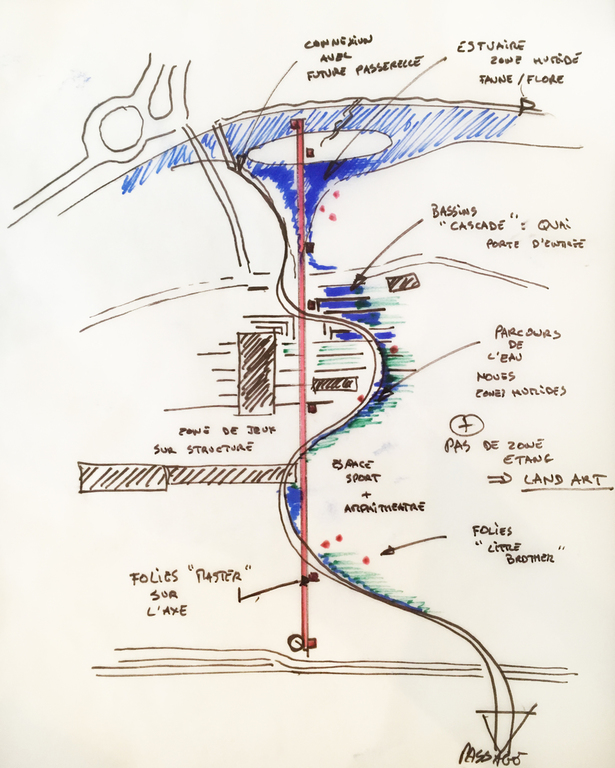 CONNEXION
AVEC
FUTURE PASSERELLE
ESTUAIRE
ZONE HUMIDE
FAUNE/FLORE
BASSINS
"CASCADE" : QUAI
PORTE D'ENTRÉE
PARCOURS
DE
L'EAU
NOUES
ZONES HUMIDES
+
PAS DE ZONE
ETANG
⇒ LAND ART
ZONE DE JEUX
SUR STRUCTURE
ESPACE
SPORT
+
AMPHITHEATRE
FOLIES
"LITRE
BROTHER"
FOLIES "MASTER"
SUR
L'AXE
PASSAGE